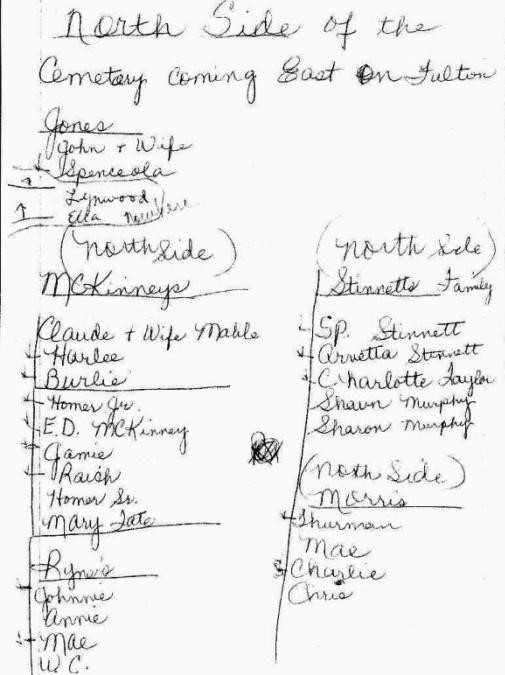 North Side of the
Cemetery coming East on Fulton
Jones
John + Wife
Spenceola
Lynwood
Ella
(North Side)
McKinneys
Claude + Wife Mable
Harlee
Burlie
Homer Jr.
E.D. McKinney
Jamie
Raish
Homer Sr.
Mary Tate
Johnnie
Annie
Mae
W.C.
(North Side)
Stinnetts Family
SP. Stinnett
Arvetta Stinnett
Charlotte Taylor
Shaun Murphy
Sharon Murphy
(North Side)
Morris
Thurman
Mae
Charlie
Chris